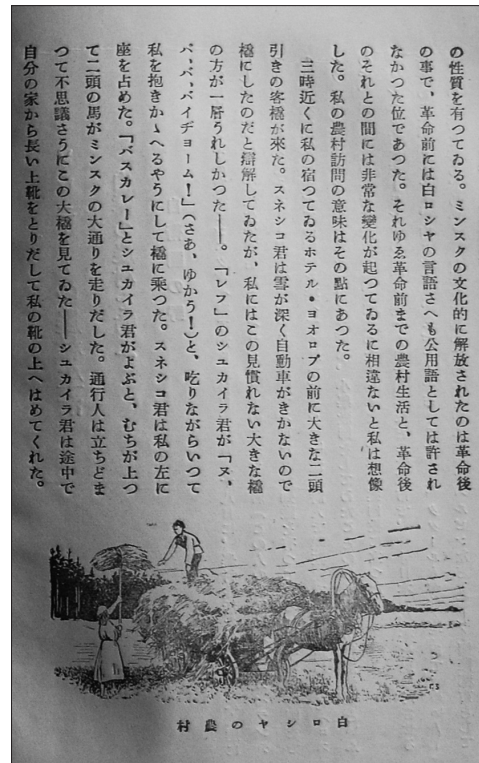 の性質を有つてゐる。ミンスクの文化的に解放されたのは革命後
の事で、革命前には白ロシヤの言語さへも公用語としては許され
なかつた位であつた。それゆゑ革命前までの農村生活と、革命後
のそれとの間には非常な變化が起つてゐるに相違ないと私は想像
した。私の農村訪問の意味はその點にあつた。
三時近くに私の宿つてゐるホテル・ヨオロプの前に大きな二頭
引きの客橇が來た。スネシコ君は雪が深く自動車がきかないので
橇にしたのだと辯解してゐたが、私にはこの見慣れない大きな橇
の方が一層うれしかつた――。「レフ」のシユカイラ君が「ヌ、
バ、バ、バイヂョーム！」(さあ、ゆかう！)と、吃りながらいつて
私を抱きかゝへるやうにして橇に乘つた。スネシコ君は私の左に
座を占めた。「バスカレー」とシユカイラ君がよぶと、むちが上つ
て二頭の馬がミンスクの大通りを走りだした。通行人は立ちどま
つて不思議さうにこの大橇を見てゐた――シユカイラ君は途中で
自分の家から長い上靴をとりだして私の靴の上へはめてくれた。
白ロシヤの農村